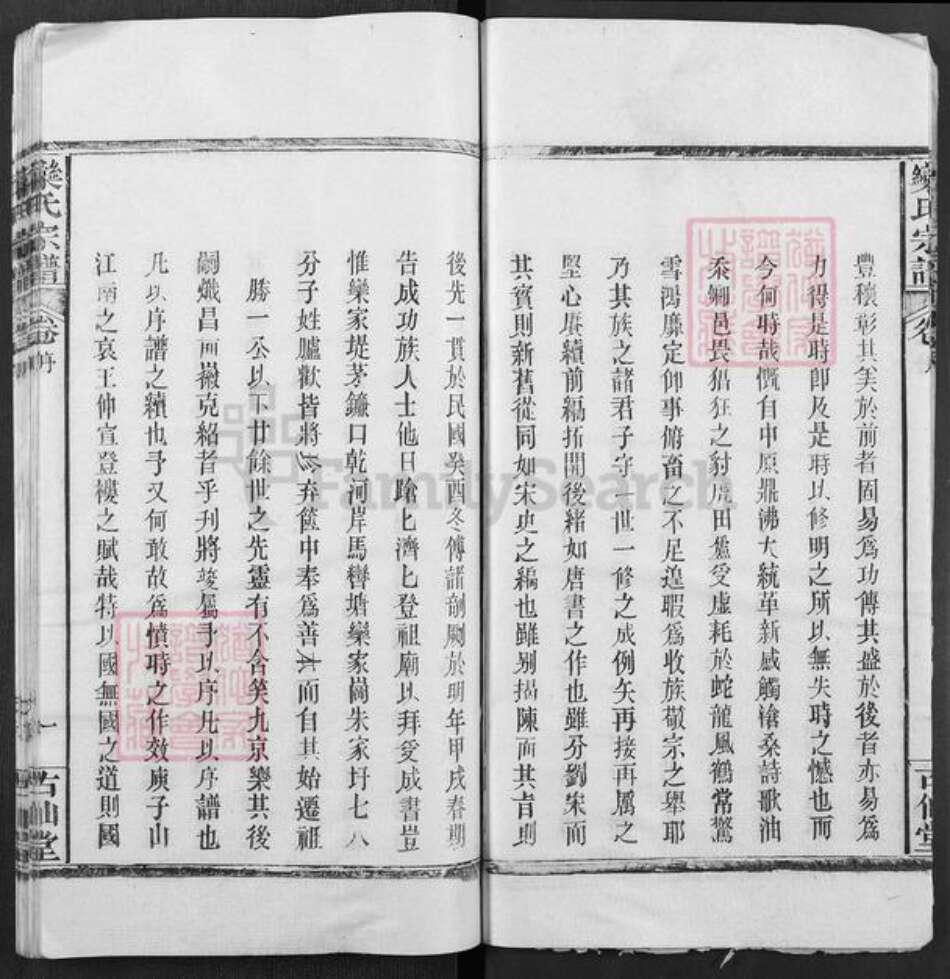 豐穰彰其美於前者固易爲功傳其盛於後者亦易爲
力得是時卽及是時以修明之所以無失時之憾也而
今何時哉慨自中原鼎沸大統革新感觸滄桑詩歌油
黍蜩邑畏猖狂之豺虎田蠶受虛耗於蛇龍風鶴常驚
雪鴻靡定仰事俯畜之不足遑暇爲收族敬宗之舉耶
乃其族之諸君子守一世一修之成例矢再接再厲之
堅心賡續前編拓開後緒如唐書之作也雖分劉宋而
其實則新舊從同如宋史之編也雖别揭陳而其旨則
後先一貫於民國癸酉冬傅諸剞劂於明年甲戌春期
告成功族人士他日蹌匕濟匕登祖廟以拜受成書豈
惟欒家堤茅鐮口乾河岸馬轡塘欒家崗朱家圩七八
分子姓臚歡皆將弆篋中奉爲善本而自其始遷祖
勝一公以下廿餘世之先靈有不含笑九京欒其後
嗣熾昌而徽克紹者乎刋將竣屬予以序凡以序譜也
凡以序譜之續也予又何敢故爲憤時之作效庾子山
江南之哀王仲宣登樓之賦哉特以國無國之道則國
欒氏宗譜
卷首
序
一
古仙堂
欒氏宗譜
古仙堂
FamilySearch